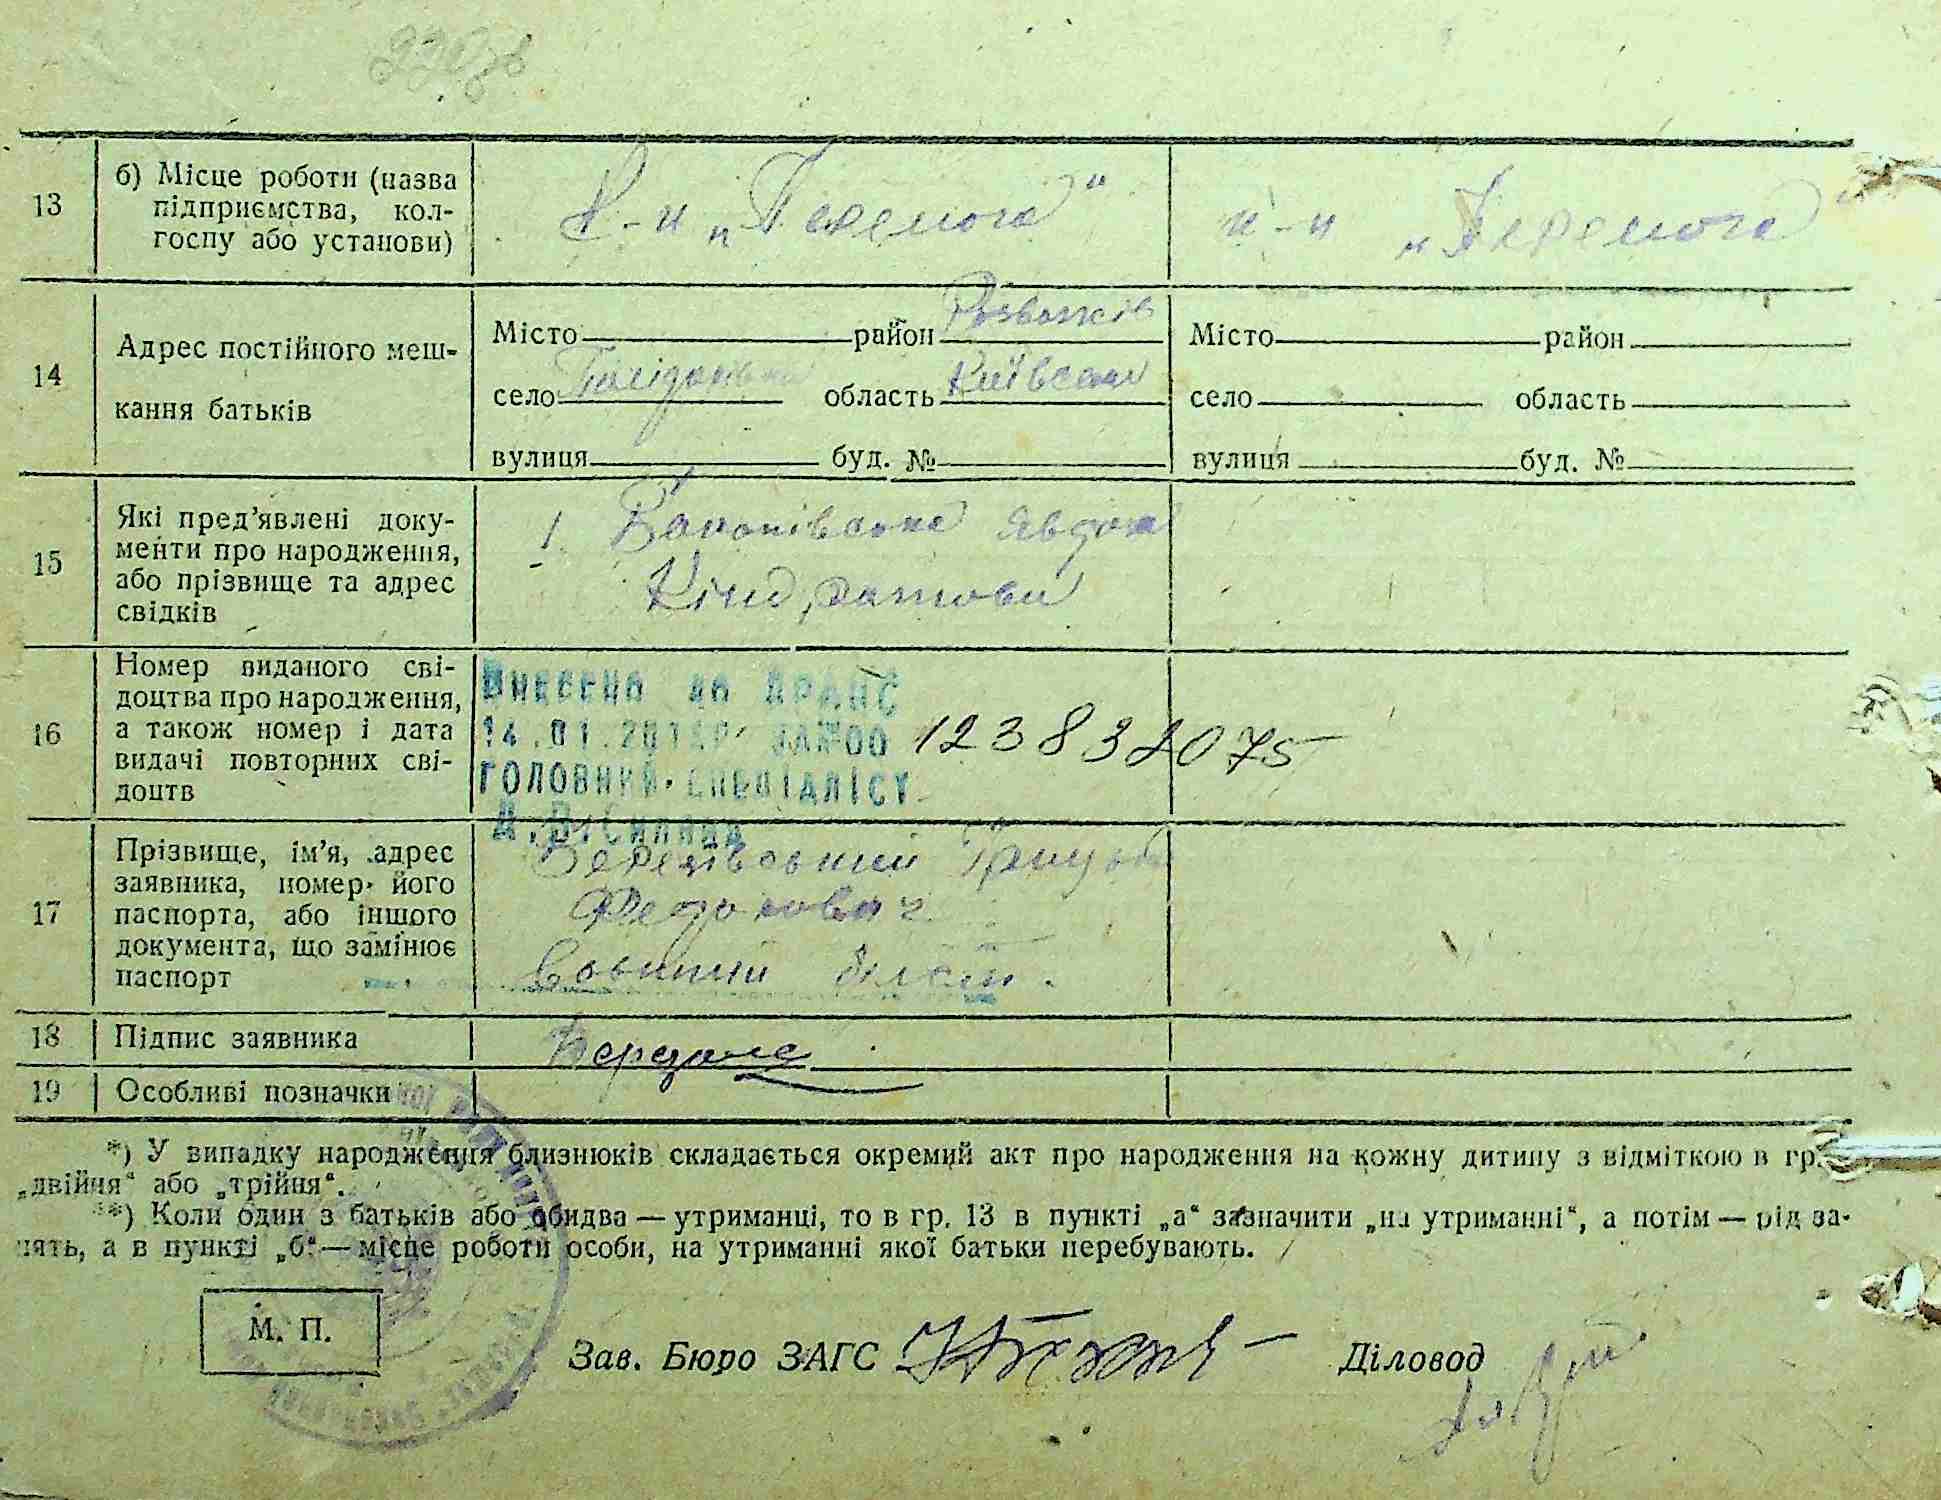 13
б) Місце роботи (назва
підприємства, кол-
госпу або установи)
К-п „Перемога“
к-п „Перемога“
14
Адрес постійного меш-
кання батьків
Місто район Розважів
село область Київська
вулиця буд. №
Місто район
село область
вулиця буд. №
15
Які пред’явлені доку-
менти про народження,
або прізвище та адрес
свідків
1. Явдоха
Кіндратовн
16
Номер виданого сві-
доцтва про народження,
а також номер і дата
видачі повторних сві-
доцтв
Внесено до ДРАЦС
14.01. ЗА№00 123832075
ГОЛОВНИЙ СПЕЦІАЛІСТ
17
Прізвище, ім’я, адрес
заявника, номер його
паспорта, або іншого
документа, що замінює
паспорт
Федорович
білет.
18
Підпис заявника
19
Особливі позначки
*) У випадку народження близнюків складається окремий акт про народження на кожну дитину з відміткою в гр.
„двійня“ або „трійня“.
**) Коли один з батьків або обидва — утриманці, то в гр. 13 в пункті „а“ зазначити „на утриманні“, а потім — рід за-
нять, а в пункті „б“ — місце роботи особи, на утриманні якої батьки перебувають.
М. П.
Зав. Бюро ЗАГС
Діловод